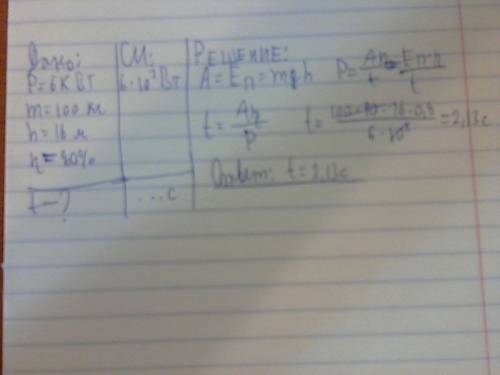 Дано:
P=6КВт
m=100 м
h=16 м
η=80%
t-?
СИ:
6·10³Вт
...с
РЕШЕНИЕ:
A=Eп=mgh
P=Aη/t=Eп·η/t
t=Aη/P
t=100·10·16·0,8/6·10³=2,13с
Ответ: t=2,13с